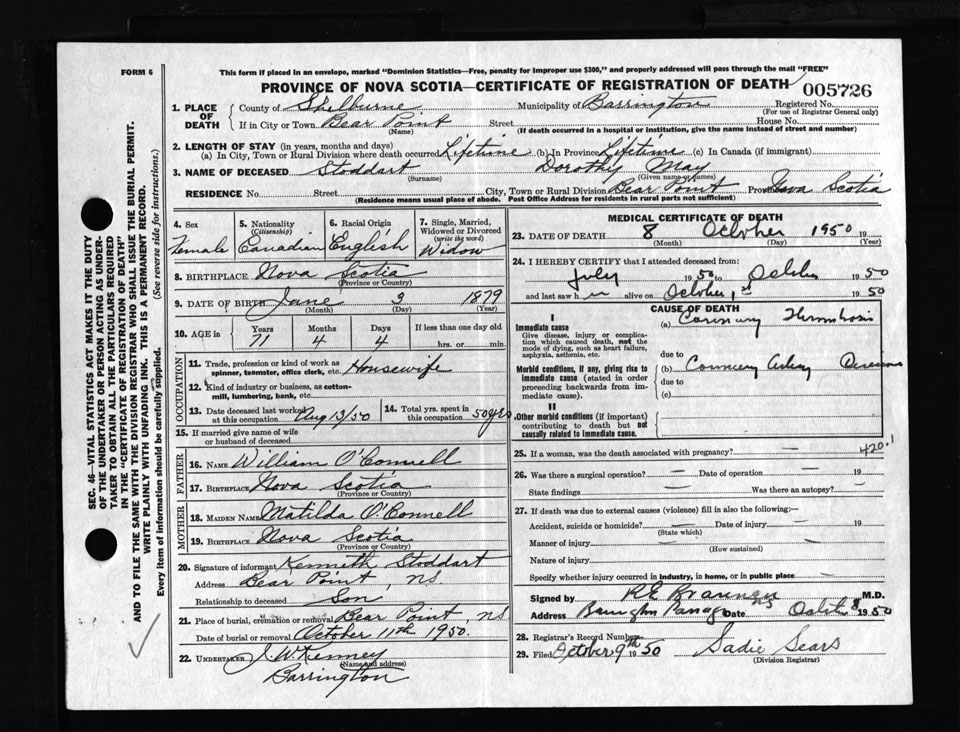 FORM 6
This form if placed in an envelope, marked "Dominion Statistics—Free, penalty for improper use $300," and properly addressed will pass through the mail "FREE"
PROVINCE OF NOVA SCOTIA—CERTIFICATE OF REGISTRATION OF DEATH
005726
1. PLACE OF DEATH
County of Shelburne Municipality of Barrington Registered No.
(For use of Registrar General only)
If in City or Town Bear Point Street House No.
(Name) (If death occurred in a hospital or institution, give the name instead of street and number)
2. LENGTH OF STAY (in years, months and days)
(a) In City, Town or Rural Division where death occurred Lifetime (b) In Province Lifetime (c) In Canada (if immigrant)
3. NAME OF DECEASED Stoddart Dorothy May
(Surname) (Given name or names)
RESIDENCE No. Street City, Town or Rural Division Bear Point Province Nova Scotia
(Residence means usual place of abode. Post Office Address for residents in rural parts not sufficient)
4. Sex Female
5. Nationality (Citizenship) Canadian
6. Racial Origin English
7. Single, Married, Widowed or Divorced (write the word) Widow
8. BIRTHPLACE Nova Scotia
(Province or Country)
9. DATE OF BIRTH June 3 1879
(Month) (Day) (Year)
10. AGE in Years Months Days If less than one day old
71 4 4 hrs. or min.
OCCUPATION
11. Trade, profession or kind of work as spinner, teamster, office clerk, etc. Housewife
12. Kind of industry or business, as cotton-mill, lumbering, bank, etc.
13. Date deceased last worked at this occupation Aug 13/50
14. Total yrs. spent in this occupation 50 yrs
15. If married give name of wife or husband of deceased
FATHER
16. Name William O'Connell
17. BIRTHPLACE Nova Scotia
(Province or Country)
MOTHER
18. MAIDEN NAME Matilda O'Connell
19. BIRTHPLACE Nova Scotia
(Province or Country)
20. Signature of informant Kenneth Stoddart
Address Bear Point, NS
Relationship to deceased Son
21. Place of burial, cremation or removal Bear Point, NS.
Date of burial or removal October 11th 1950.
22. UNDERTAKER J. W. Kenney
(Name and address)
Barrington
MEDICAL CERTIFICATE OF DEATH
23. DATE OF DEATH 8 October 1950 19
(Month) (Day) (Year)
24. I HEREBY CERTIFY that I attended deceased from:
July 1950 to October 1950
and last saw h alive on October 1st 1950
CAUSE OF DEATH
I
Immediate cause
Give disease, injury or complication which caused death, not the mode of dying, such as heart failure, asphyxia, asthenia, etc.
(a) Coronary Thrombosis
due to
Morbid conditions, if any, giving rise to immediate cause (stated in order proceeding backwards from immediate cause).
(b) Coronary Artery Disease
due to
(c)
II
Other morbid conditions (if important) contributing to death but not causally related to immediate cause.
420.1
25. If a woman, was the death associated with pregnancy? —
26. Was there a surgical operation? — Date of operation — 19
State findings — Was there an autopsy? —
27. If death was due to external causes (violence) fill in also the following:
Accident, suicide or homicide? — Date of injury — 19
(State which)
Manner of injury —
(How sustained)
Nature of injury
Specify whether injury occurred in industry, in home, or in public place —
Signed by M.D.
Address Date 1950
28. Registrar's Record Number
29. Filed October 9th 1950 Sadie Sears
(Division Registrar)
SEC. 46—VITAL STATISTICS ACT MAKES IT THE DUTY
OF THE UNDERTAKER OR PERSON ACTING AS UNDER-
TAKER TO OBTAIN ALL THE PARTICULARS REQUIRED
IN THE "CERTIFICATE OF REGISTRATION OF DEATH"
AND TO FILE THE SAME WITH THE DIVISION REGISTRAR WHO SHALL ISSUE THE BURIAL PERMIT.
WRITE PLAINLY WITH UNFADING INK. THIS IS A PERMANENT RECORD.
Every item of information should be carefully supplied. (See reverse side for instructions.)